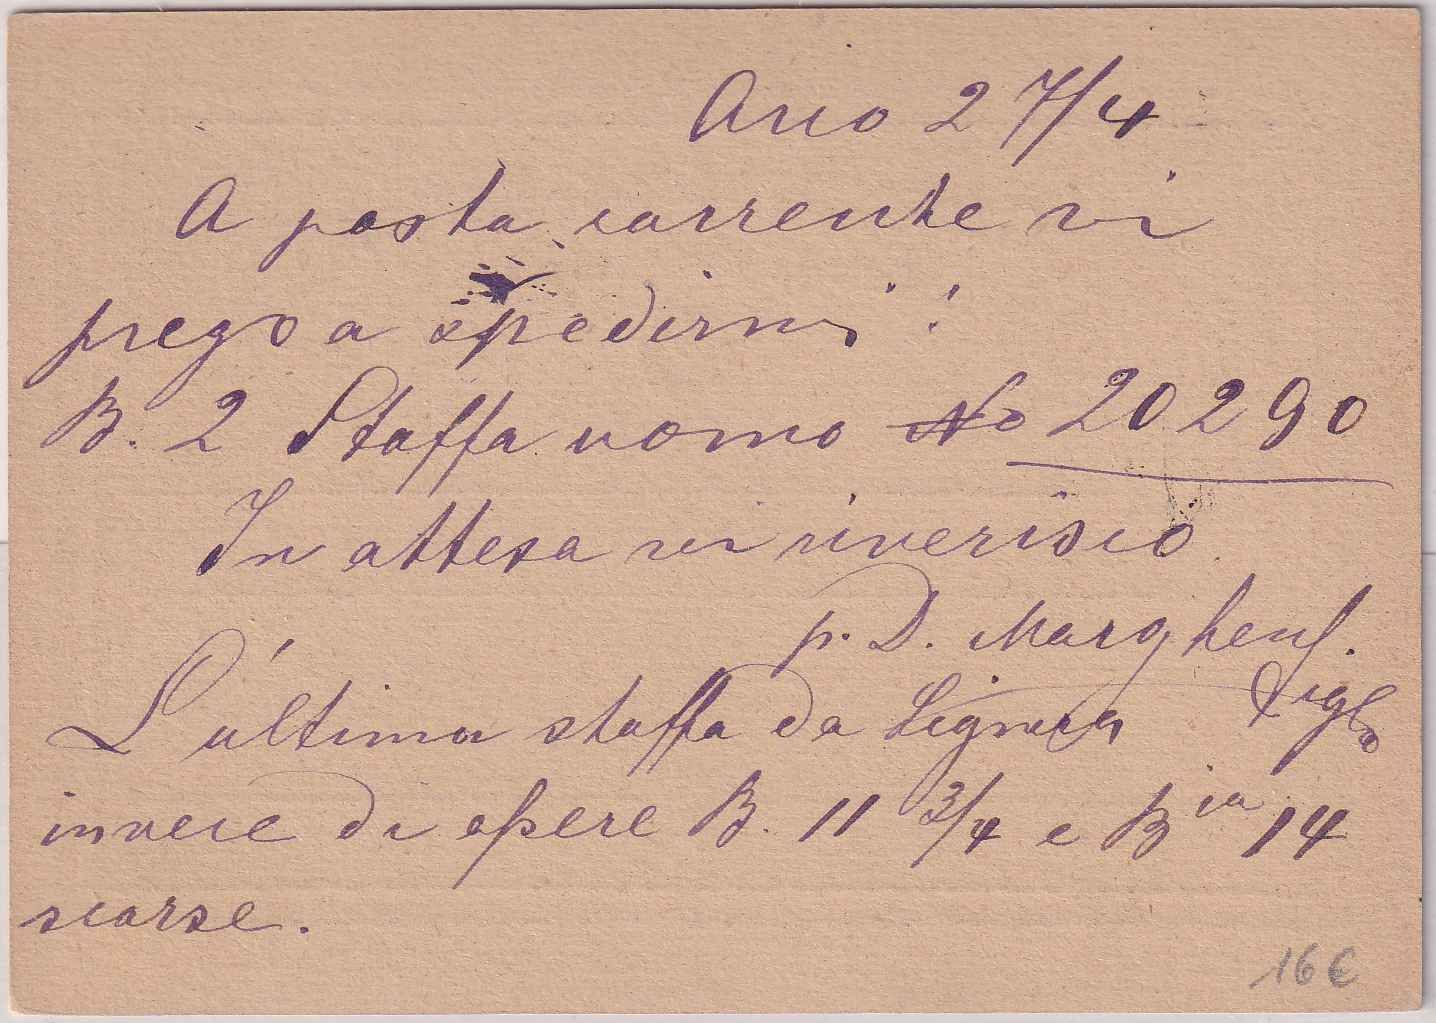 Arco 27/4
A posta corrente vi
prego a spedirmi:
B. 2 Staffa uomo No 20290
In attesa vi riverisco
p. D. Marghen f.
L'ultima staffa da Signora
Figlo
invece di essere B. 11 3/4 e B 14
scarse.
16€